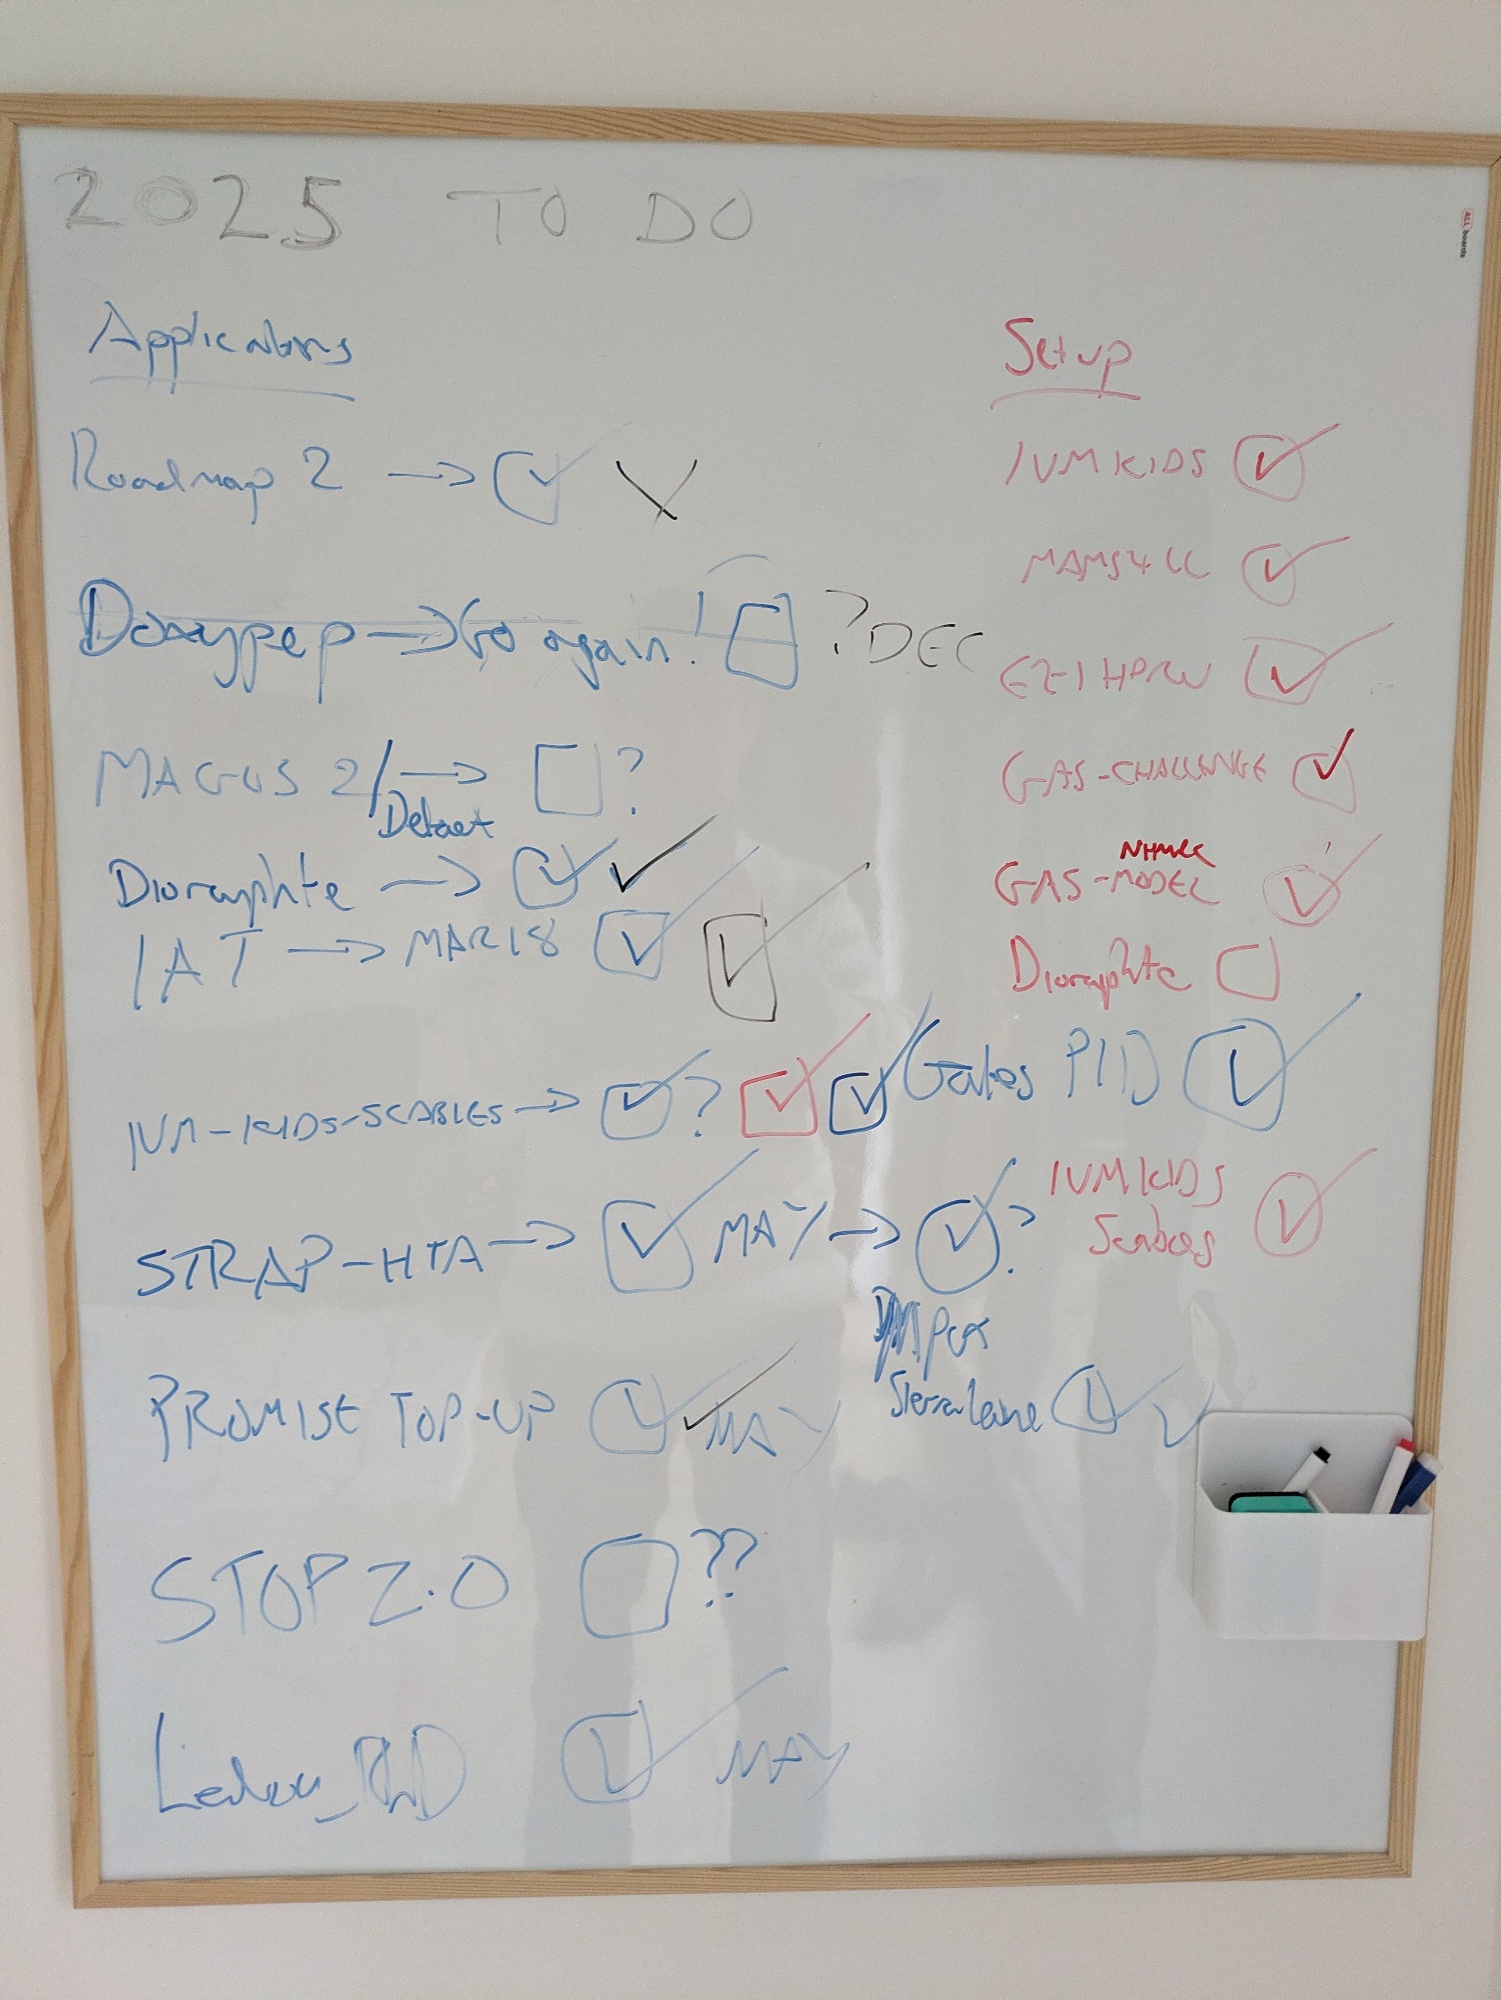 2025 TO DO
Applications
Roadmap 2 →
Doxypep → Go again! ? DEC
MAGUS 2/ → ?
Dioraphte →
IAT → MAR 18
IVM-KIDS-SCABIES → ?
STRAP-HTA → MAY → ?
Mpox
Sierra leone
PROMISE TOP-UP MAY
STOP 2.0 ??
MAY
Setup
IVM KIDS
GAS-CHALLENGE
NHMRC
GAS-MODEL
Dioraphte
Gates PID
IVM KIDS
Scabies
ALL boards